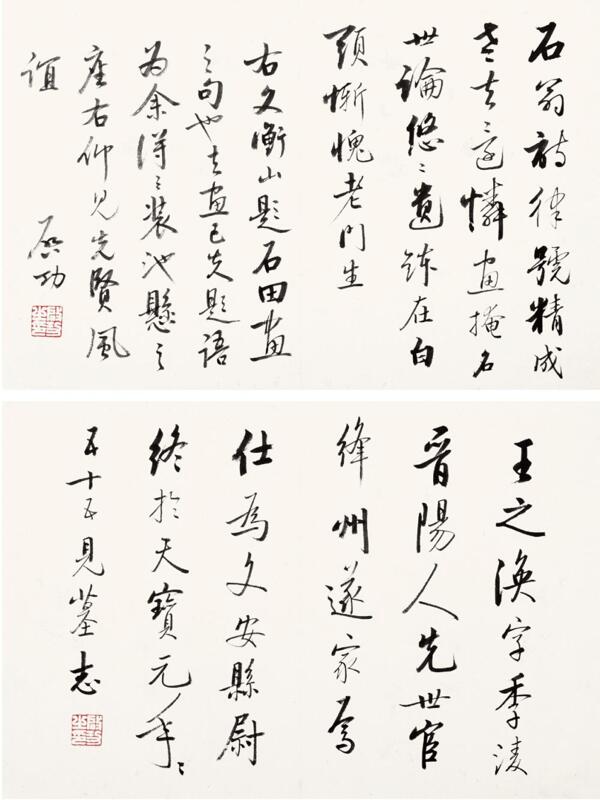 石翁詩律號精成
老去還憐畫掩名
世論悠〻遺鉢在白
頭慚愧老門生
右文衡山題石田畫
之句也其畫已失題語
為余得之裝池懸之
座右仰見先賢風
誼
啟功
王之渙字季淩
晉陽人先世官
絳州遂家焉
仕為文安縣尉
終於天寶元年〻
五十五見墓志